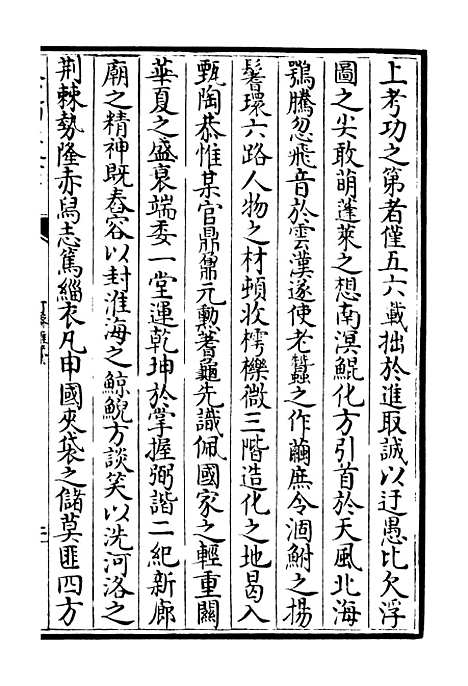 上考功之第者僅五六載拙於進取誠以迂愚比欠浮
圖之尖敢萌蓬萊之想南溟鯤化方引首於天風北海
鶚騰忽飛音於雲漢遂使老蠶之作繭庶令涸鮒之揚
鬐環六路人物之材頓收樗櫟微三階造化之地曷入
甄陶恭惟某官鼎鼐元勳蓍龜先識佩國家之輕重關
華夏之盛衰端委一堂運乾坤於掌握弼諧二紀新廊
廟之精神既舂容以封淮海之鯨鯢方談笑以洗河洛之
荆棘勢隆赤舄志篤緇衣凡申國夾袋之儲莫匪四方